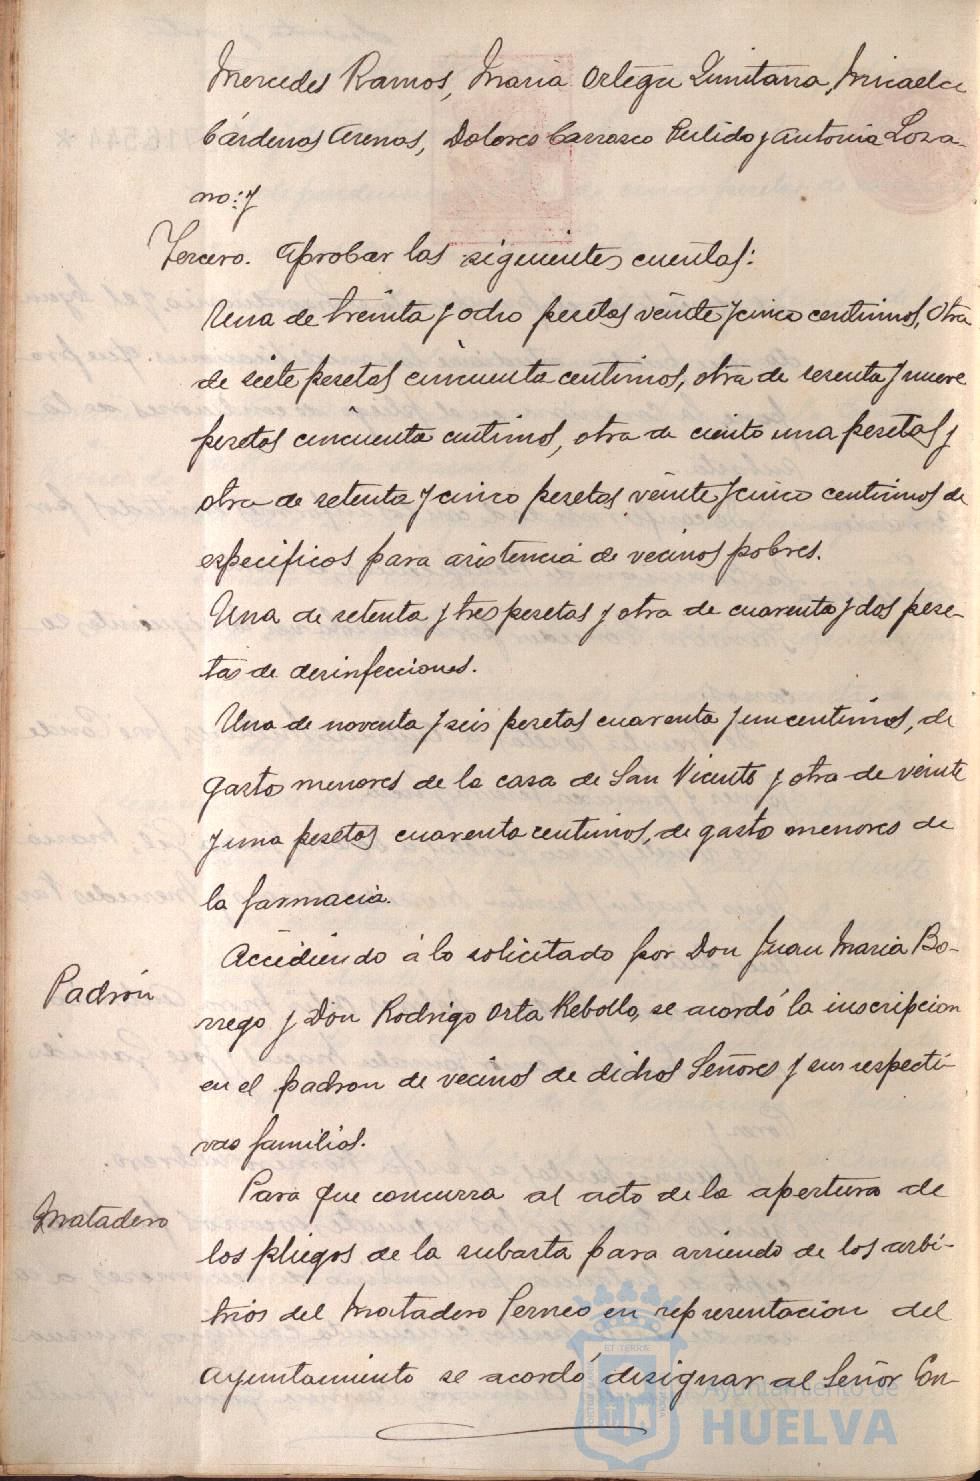 Mercedes Ramos, Maria Ortega Quintana, Micaela
Cárdenas Arenas, Dolores Carrasco Pulido y Antonia Loza-
no: y
Tercero. Aprobar las siguientes cuentas:
Una de treinta y ocho pesetas veinte y cinco centimos, otra
de siete pesetas cincuenta centimos, otra de sesenta y nueve
pesetas cincuenta centimos, otra de ciento una pesetas y
otra de setenta y cinco pesetas veinte y cinco centimos de
especificos para asistencia de vecinos pobres.
Una de setenta y tres pesetas y otra de cuarenta y dos pese-
tas de desinfecciones.
Una de noventa y seis pesetas cuarenta y un centimos, de
gastos menores de la casa de San Vicente y otra de veinte
y una pesetas cuarenta centimos, de gasto menores de
la farmacia.
Padrón
Accediendo á lo solicitado por Don Juan Maria Bo-
rrego y Don Rodrigo Orta Rebollo, se acordó la inscripcion
en el padron de vecinos de dichos Señores y sus respecti-
vas familias.
Matadero
Para que concurra al acto de la apertura de
los pliegos de la subasta para arriendo de los arbi-
trios del Matadero Perneo en representacion del
Ayuntamiento se acordó designar al Señor Con-
Ayuntamiento de
HUELVA